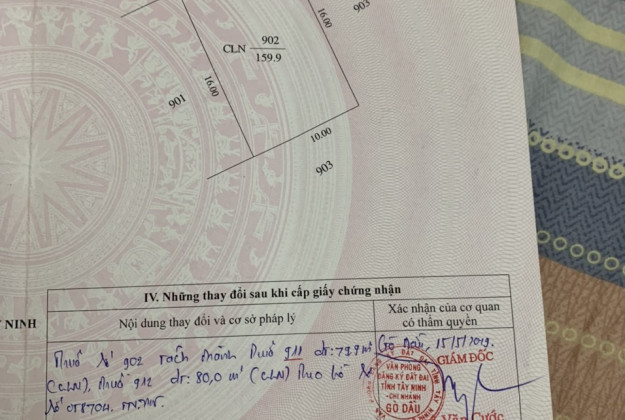 16.00
903
CLN 902
159.9
16.00
901
10.00
903
IV. Những thay đổi sau khi cấp giấy chứng nhận
NINH
Nội dung thay đổi và cơ sở pháp lý
Xác nhận của cơ quan
có thẩm quyền
Thuở số 902 tách thành thuở 911 dt: 79,9 m²
(CLN), thuở 912 dt: 80,0 m² (CLN) theo hồ sơ
số
Gò Dầu, 15/5/2019.
GIÁM ĐỐC
VĂN PHÒNG
ĐĂNG KÝ ĐẤT ĐAI
TỈNH TÂY NINH
-CHI NHÁNH
GÒ DẦU
Văn Cước